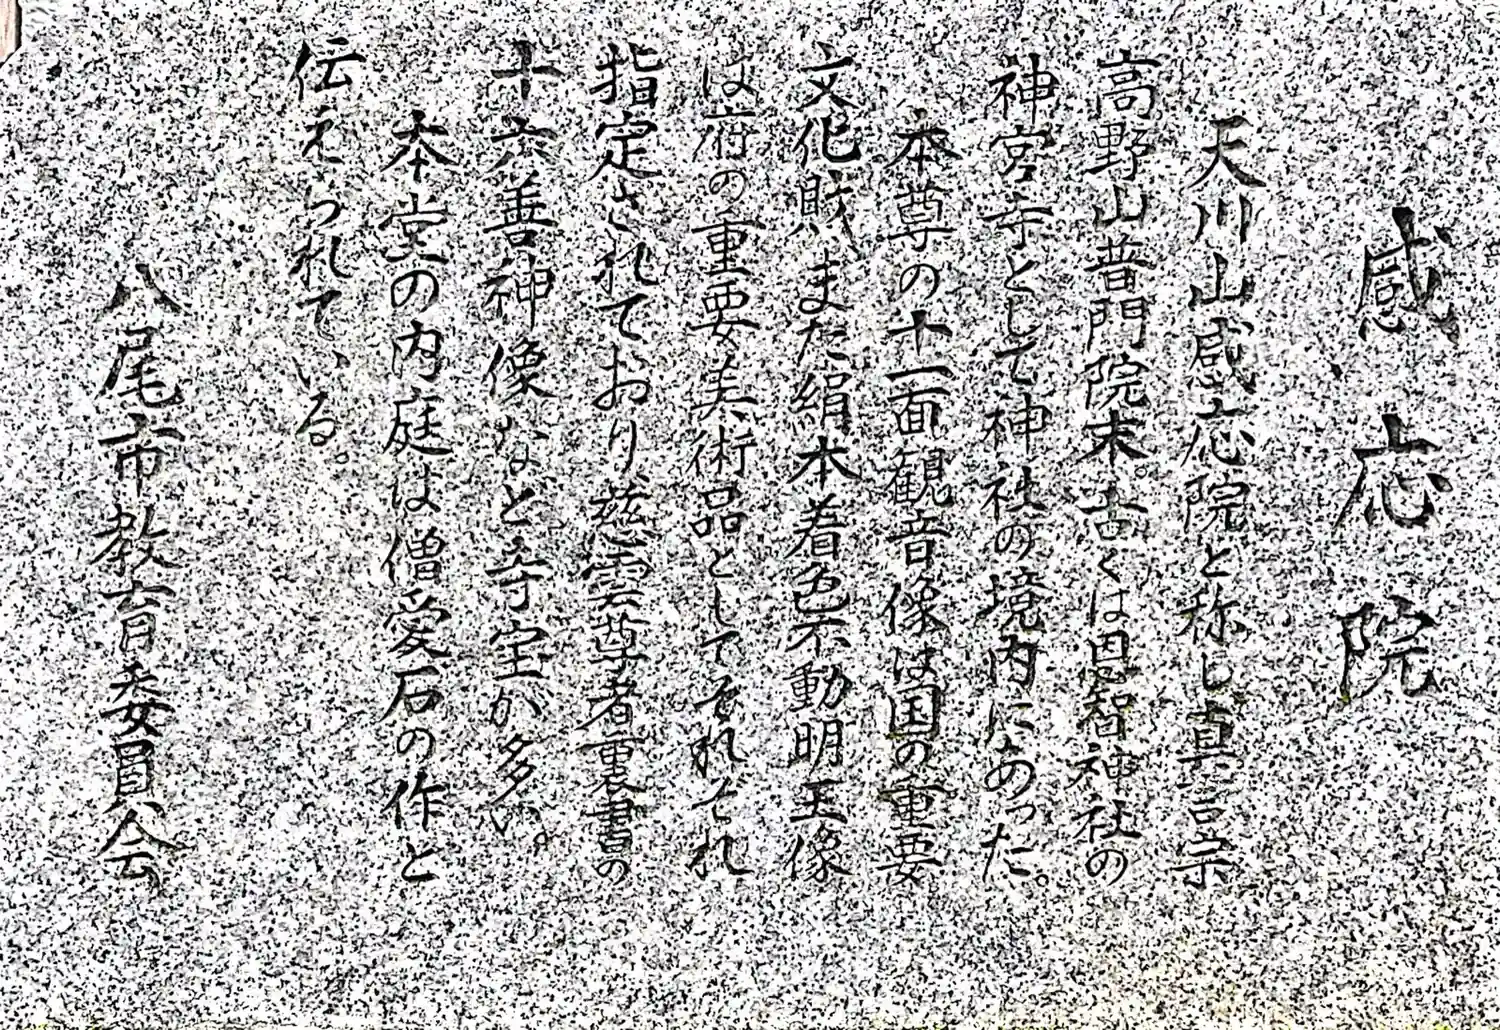 感応院
天川山感応院と称し真言宗
高野山普門院末。古くは恩智神社の
神宮寺として神社の境内にあった。
本尊の十一面観音像は国の重要
文化財また絹本着色不動明王像
は府の重要美術品としてそれぞれ
指定されており慈雲尊者裏書の
十六善神像など寺宝が多い。
本堂の内庭は僧愛石の作と
伝えられている。
八尾市教育委員会